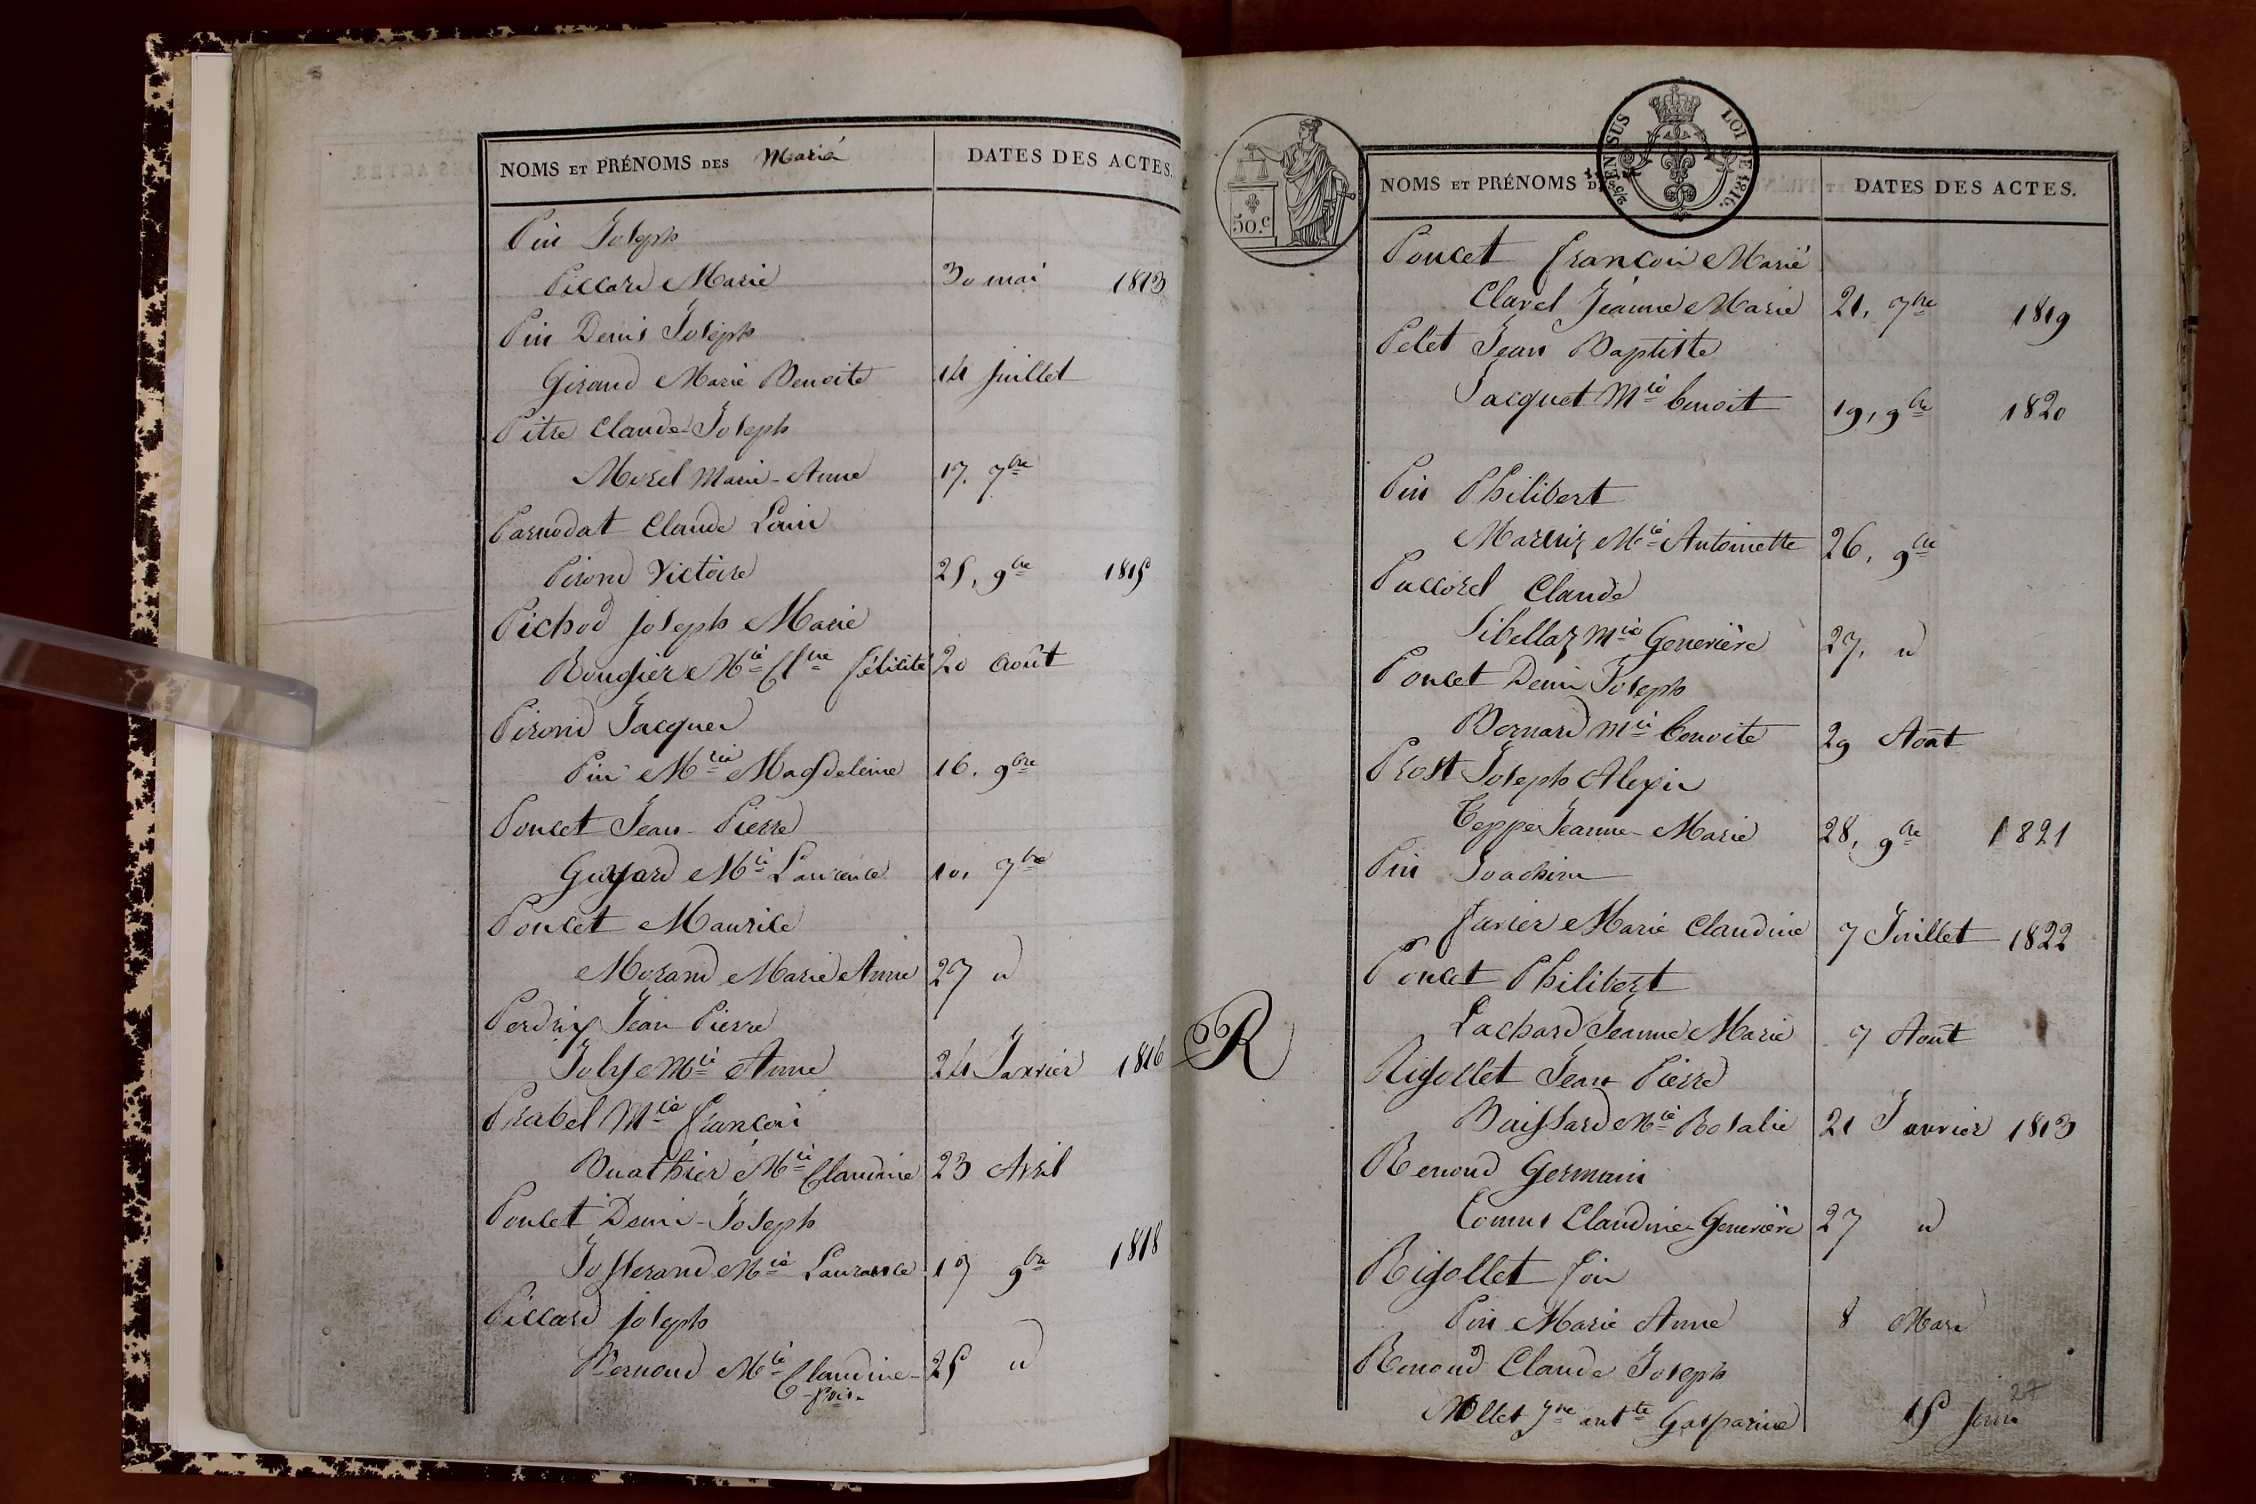 NOMS ET PRÉNOMS DES Mariés
DATES DES ACTES.
Pin Joseph
Piccard Marie 30 mai 1813
Pin Denis Joseph
Giraud Marie Benoite 14 Juillet
Pitre Claude-Joseph
Morel Marie-Anne 17. 7bre
Parnodat Claude Louis
Pirond Victoire 25, 9bre 1815
Pichod Joseph Marie
Rougier Mie Clne félicité 20 Août
Pirond Jacques
Pin Mie Magdeleine 16. 9bre
Poncet Jean-Pierre
Guyard Mie Laurence 10, 7bre
Poncet Maurice
Morand Marie Anne 27 "
Perdrix Jean Pierre
Joly Mie Anne 24 Janvier 1816
Prabel Mie François
Buathier Mie Claudine 23 Avril
Poncet Denis-Joseph
Josserand Mie Laurence 17 9bre 1818
Piccard Joseph
Bernoud Mie Claudine- 25 "
50.c
EN SUS
LOI DE 1816.
NOMS ET PRÉNOMS DES
DATES DES ACTES.
Poncet François Marie
Clavel Jeanne Marie 21, 7bre 1819
Pelet Jean Baptiste
Jacquet Mie benoit 19, 9bre 1820
Pin Philibert
Mie Antoinette 26, 9bre
Paccorel Claude
Sibellaz Mie Geneviève 27, "
Poncet Denis Joseph
Bernard Mie benoite 29 Août
Prost Joseph Alexis
Teppe Jeanne-Marie 28, 9bre 1821
Pin Joachim
Favier Marie Claudine 7 Juillet 1822
Poncet Philibert
Lachard Jeanne Marie 7 Août
R
Rigollet Jean Pierre
Baissard Mie Rosalie 21 Janvier 1813
Renoud Germain
Comus Claudine Geneviève 27 "
Rigollet
Pin Marie Anne 8 Mars
Renoud Claude Joseph
Mollet Jne antte Gasparine 15
27